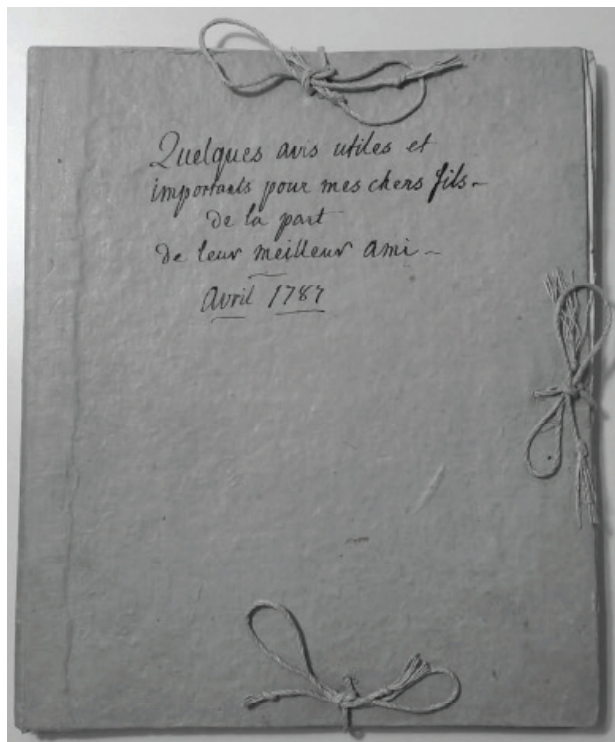 Quelques avis utiles et
importants pour mes chers fils -
de la part
de leur meilleur ami -
Avril 1787